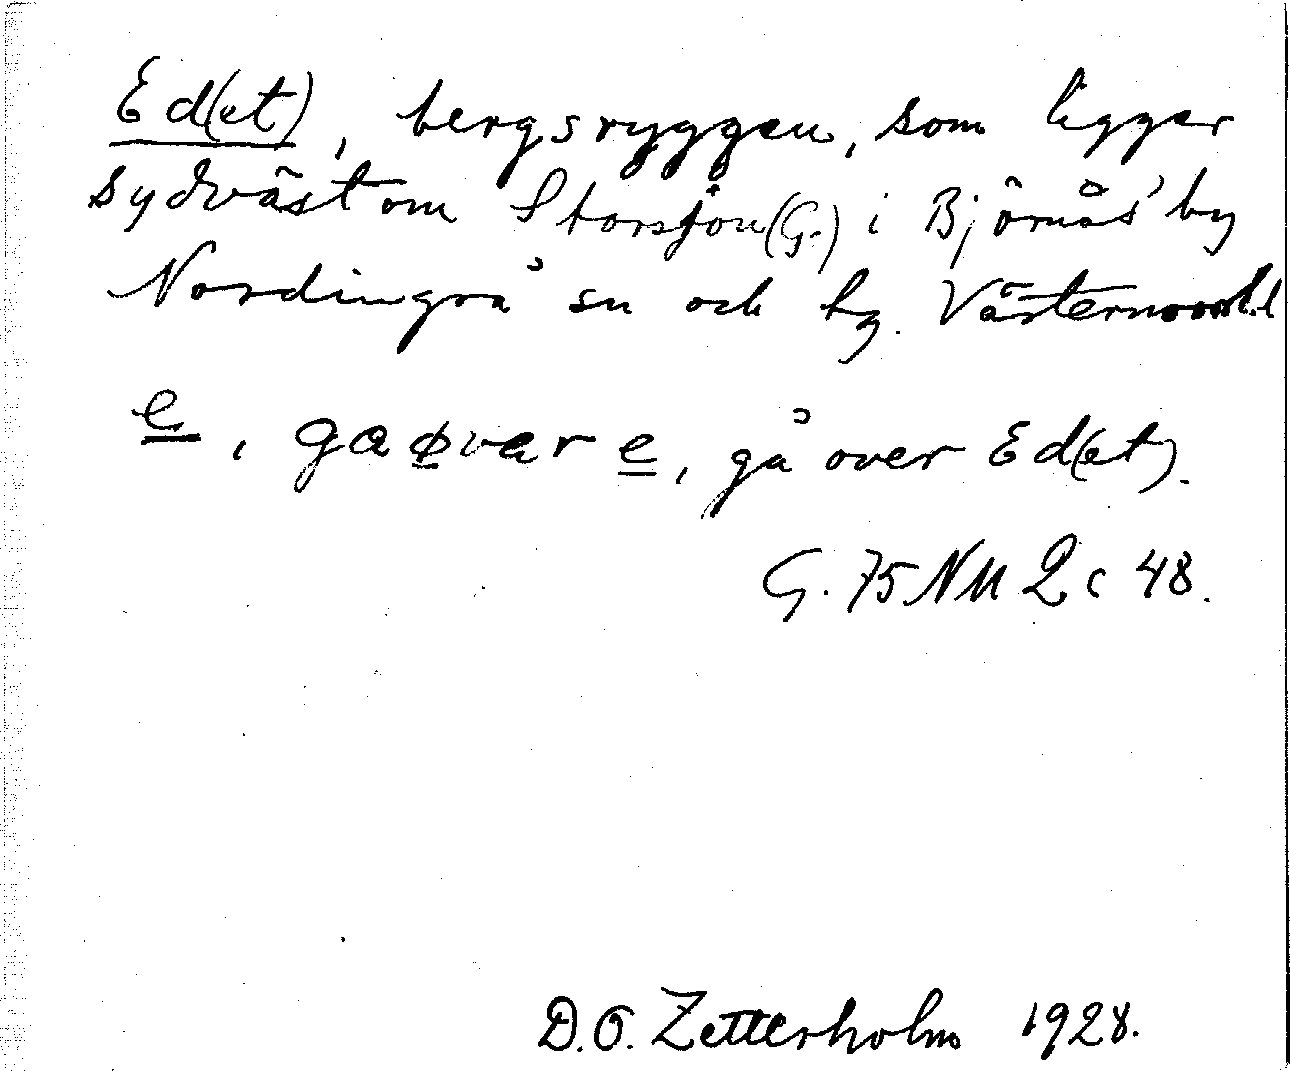 Ed(et), bergsryggen, som ligger
sydväst om Storsjön (G.) i Björnås' by
Nordingrå sn och hg. Västernorrl.l
e, ga øvar e, gå över Ed(et).
G. 75 NM 2c 48.
D. O. Zetterholm 1928.